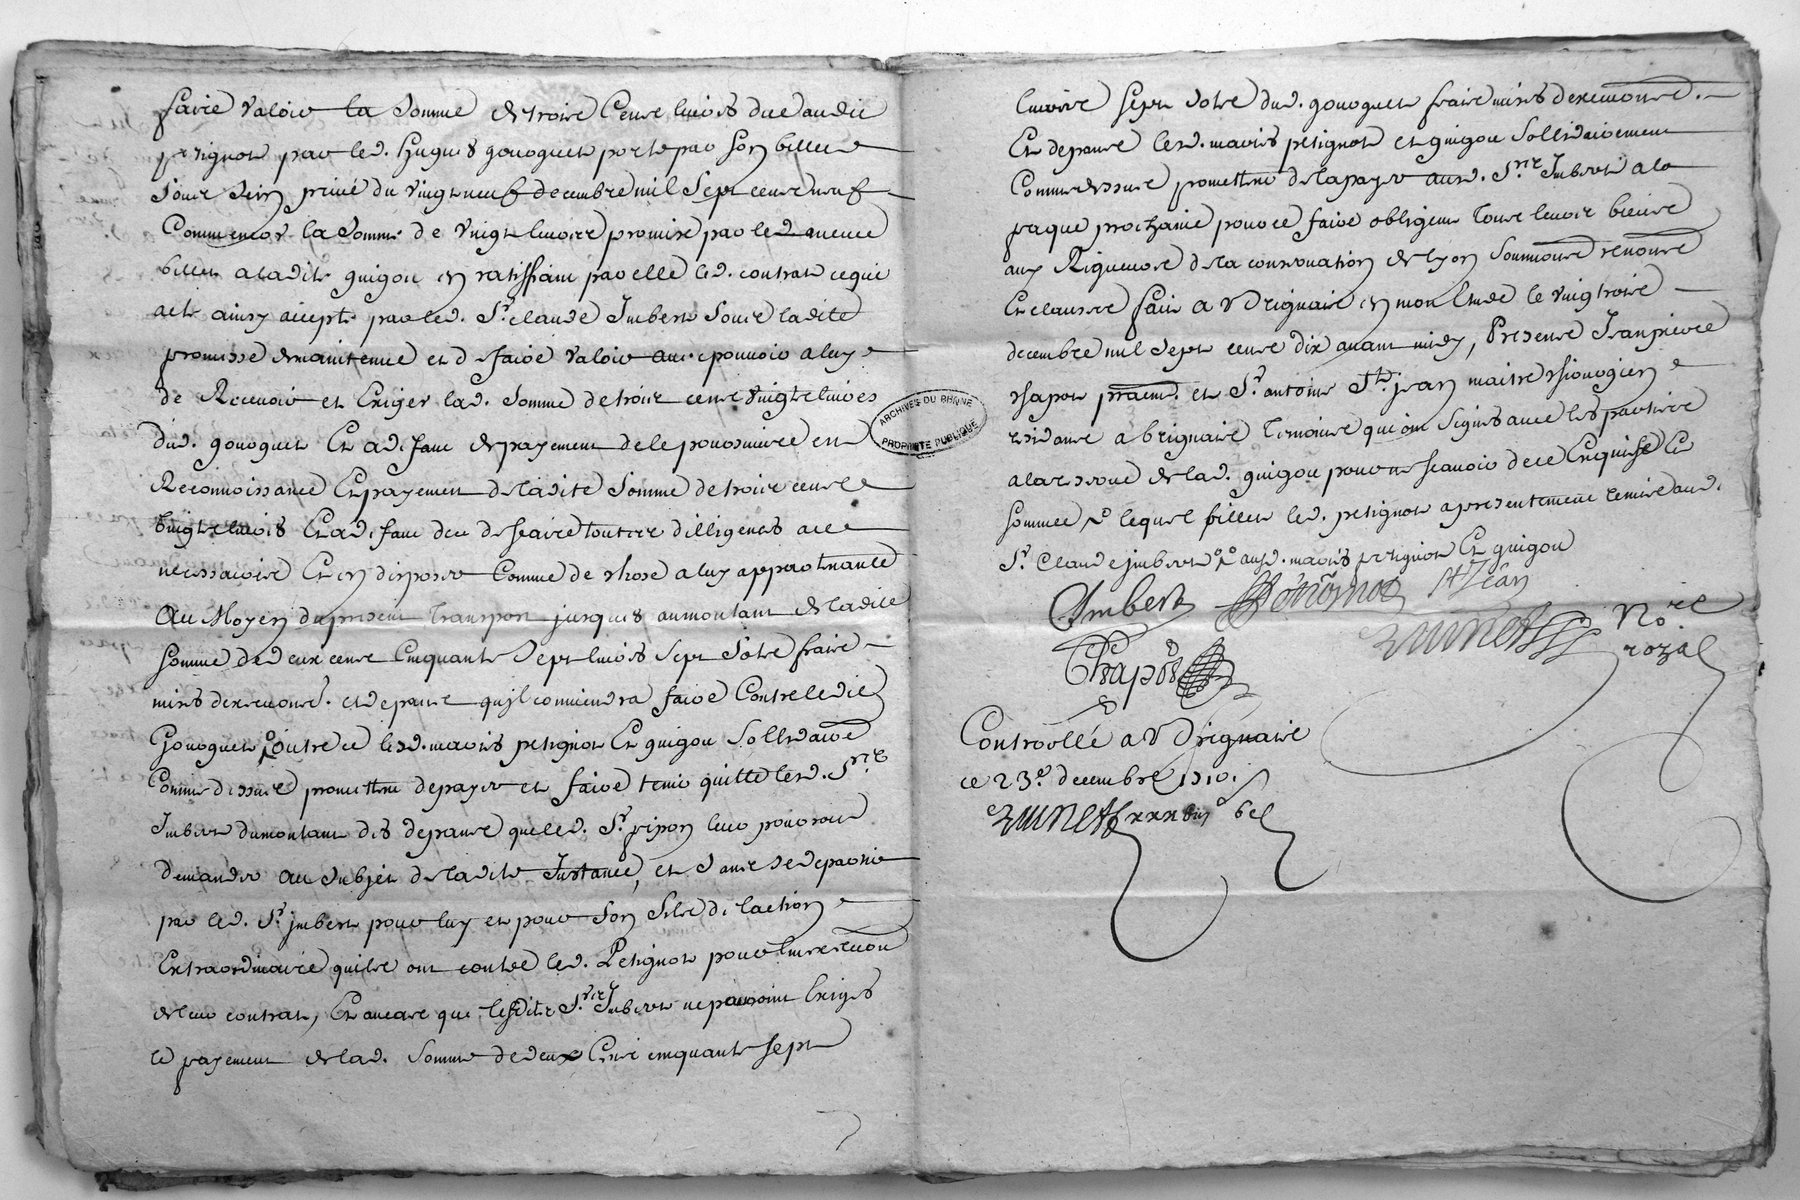 faire valoir la somme de trois cens livres due audit
petignot par led. hugues gouoguet porté par son billet
sous sein privé du vingt neuf decembre mil sept cens neuf
comm' encor la somme de vingt livres promise par led.
billet a ladite guigou en ratiffiant par elle led. contrat ce qui a
eté ainsy accepté par led. Sr. claude Imbert sous ladite
promesse de maintenue et de faire valoir avec pouvoir a luy
de Recevoir et Exiger lad. somme de trois cens vingt livres
dud. gouoguet Et a deffaut de payement de le poursuivre en
Reconnoissance Et payement de ladite somme de trois cens
vingt livres Et a deffaut de faire toutes dilligences
necessaires Et en disposer comme de chose a luy appartenante
Au Moyen du present transport jusques au montant de ladite
somme de deux cens cinquante sept livres sept sols frais
mises d'execution. et depans qu'il conviendra faire contre ledit
Gouoguet outre ce lesd. mariés petignot Et guigou sollidairement
comme dessus promettent de payer et faire tenir quitte lesd. Srs.
Imbert du montant des depans que led. Sr. pipon leur pourroit
demander au subjet de ladite Instance, et sans se departir
par led. Sr. jmbert pour luy et pour son fils de l'action
Extraordinaire qu'ils ont contre led. Petignot pour l'inexecution
de leur contrat, Et au cas que lesdits Srs. Imbert ne puissent Exiger
le payement de lad. somme de deux cens cinquante sept
livres sept sols dud. gouoguet frais mises d'execution.
Et depans lesd. mariés petignot et guigou sollidairement
comme dessus promettent de la payer ausd. Srs. Imbert a la
paque prochaine pour ce faire obligent tous leurs biens
aux Rigueurs de la conservation de lyon soumissions renons.
Et clauses fait a Brignais en mon Etude le vingt trois
decembre mil sept cens dix avant midy, Presens Jean pierre
chapot praticien. et Sr. antoine St. jean maitre chirurgien
residans a brignais temoins qui ont signés avec les parties
a la reserve de lad. guigou pour ne scavoir de ce Enquise Et
sommée lequel billet led. petignot a presentement remis aud.
Sr. Claude jmbert ausd. mariés petignot Et guigou
Imbert Petignot St Jean
Chapot
Brunet Nore. royal
Controllé a Brignais
ce 23e. decembre 1710.
Brunet
ARCHIVES DU RHÔNE
PROPRIÉTÉ PUBLIQUE